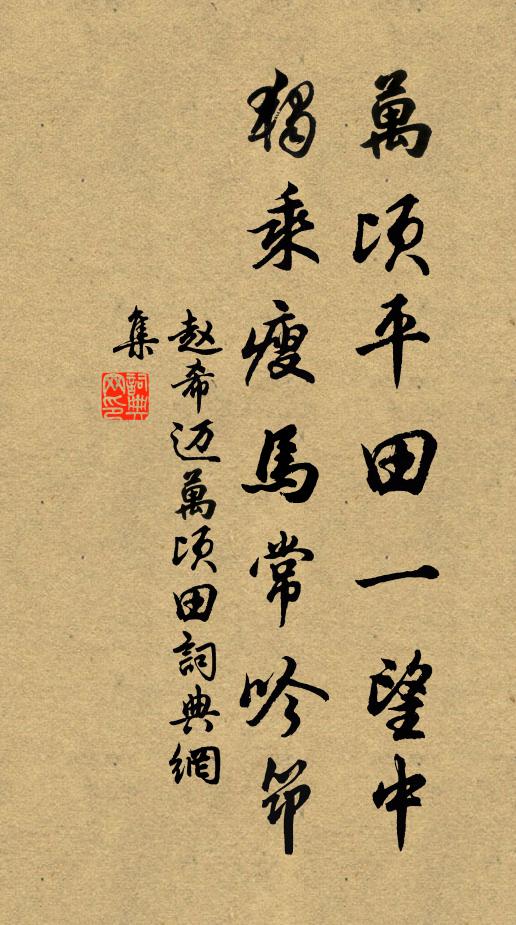 萬頃平田一望中
獨乘瘦馬常吟節
赵希迈萬頃田詞典網
集
詞典